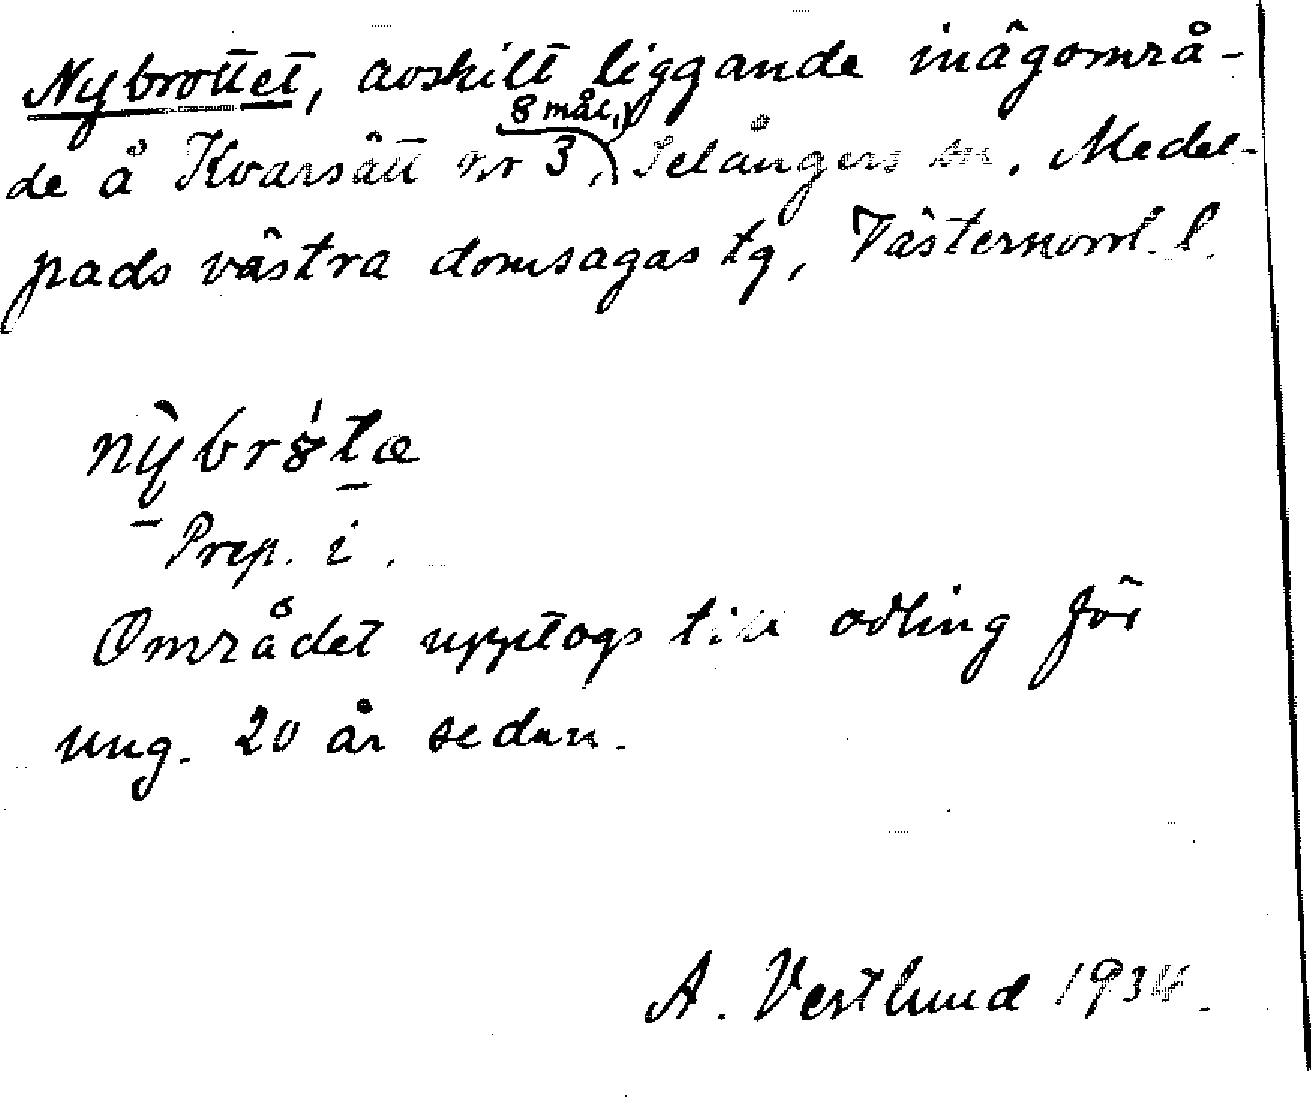 Nybrottet, avskilt liggande inägområ-
de å Kvarsätt nr 3, 8 mål, Selångers sn, Medel-
pads västra domsagas tg, Västernorrl. l.
nỳbrȣ́tæ
Prep. i.
Området upptogs till odling för
ung. 20 år sedan.
A. Vestlund 1934.